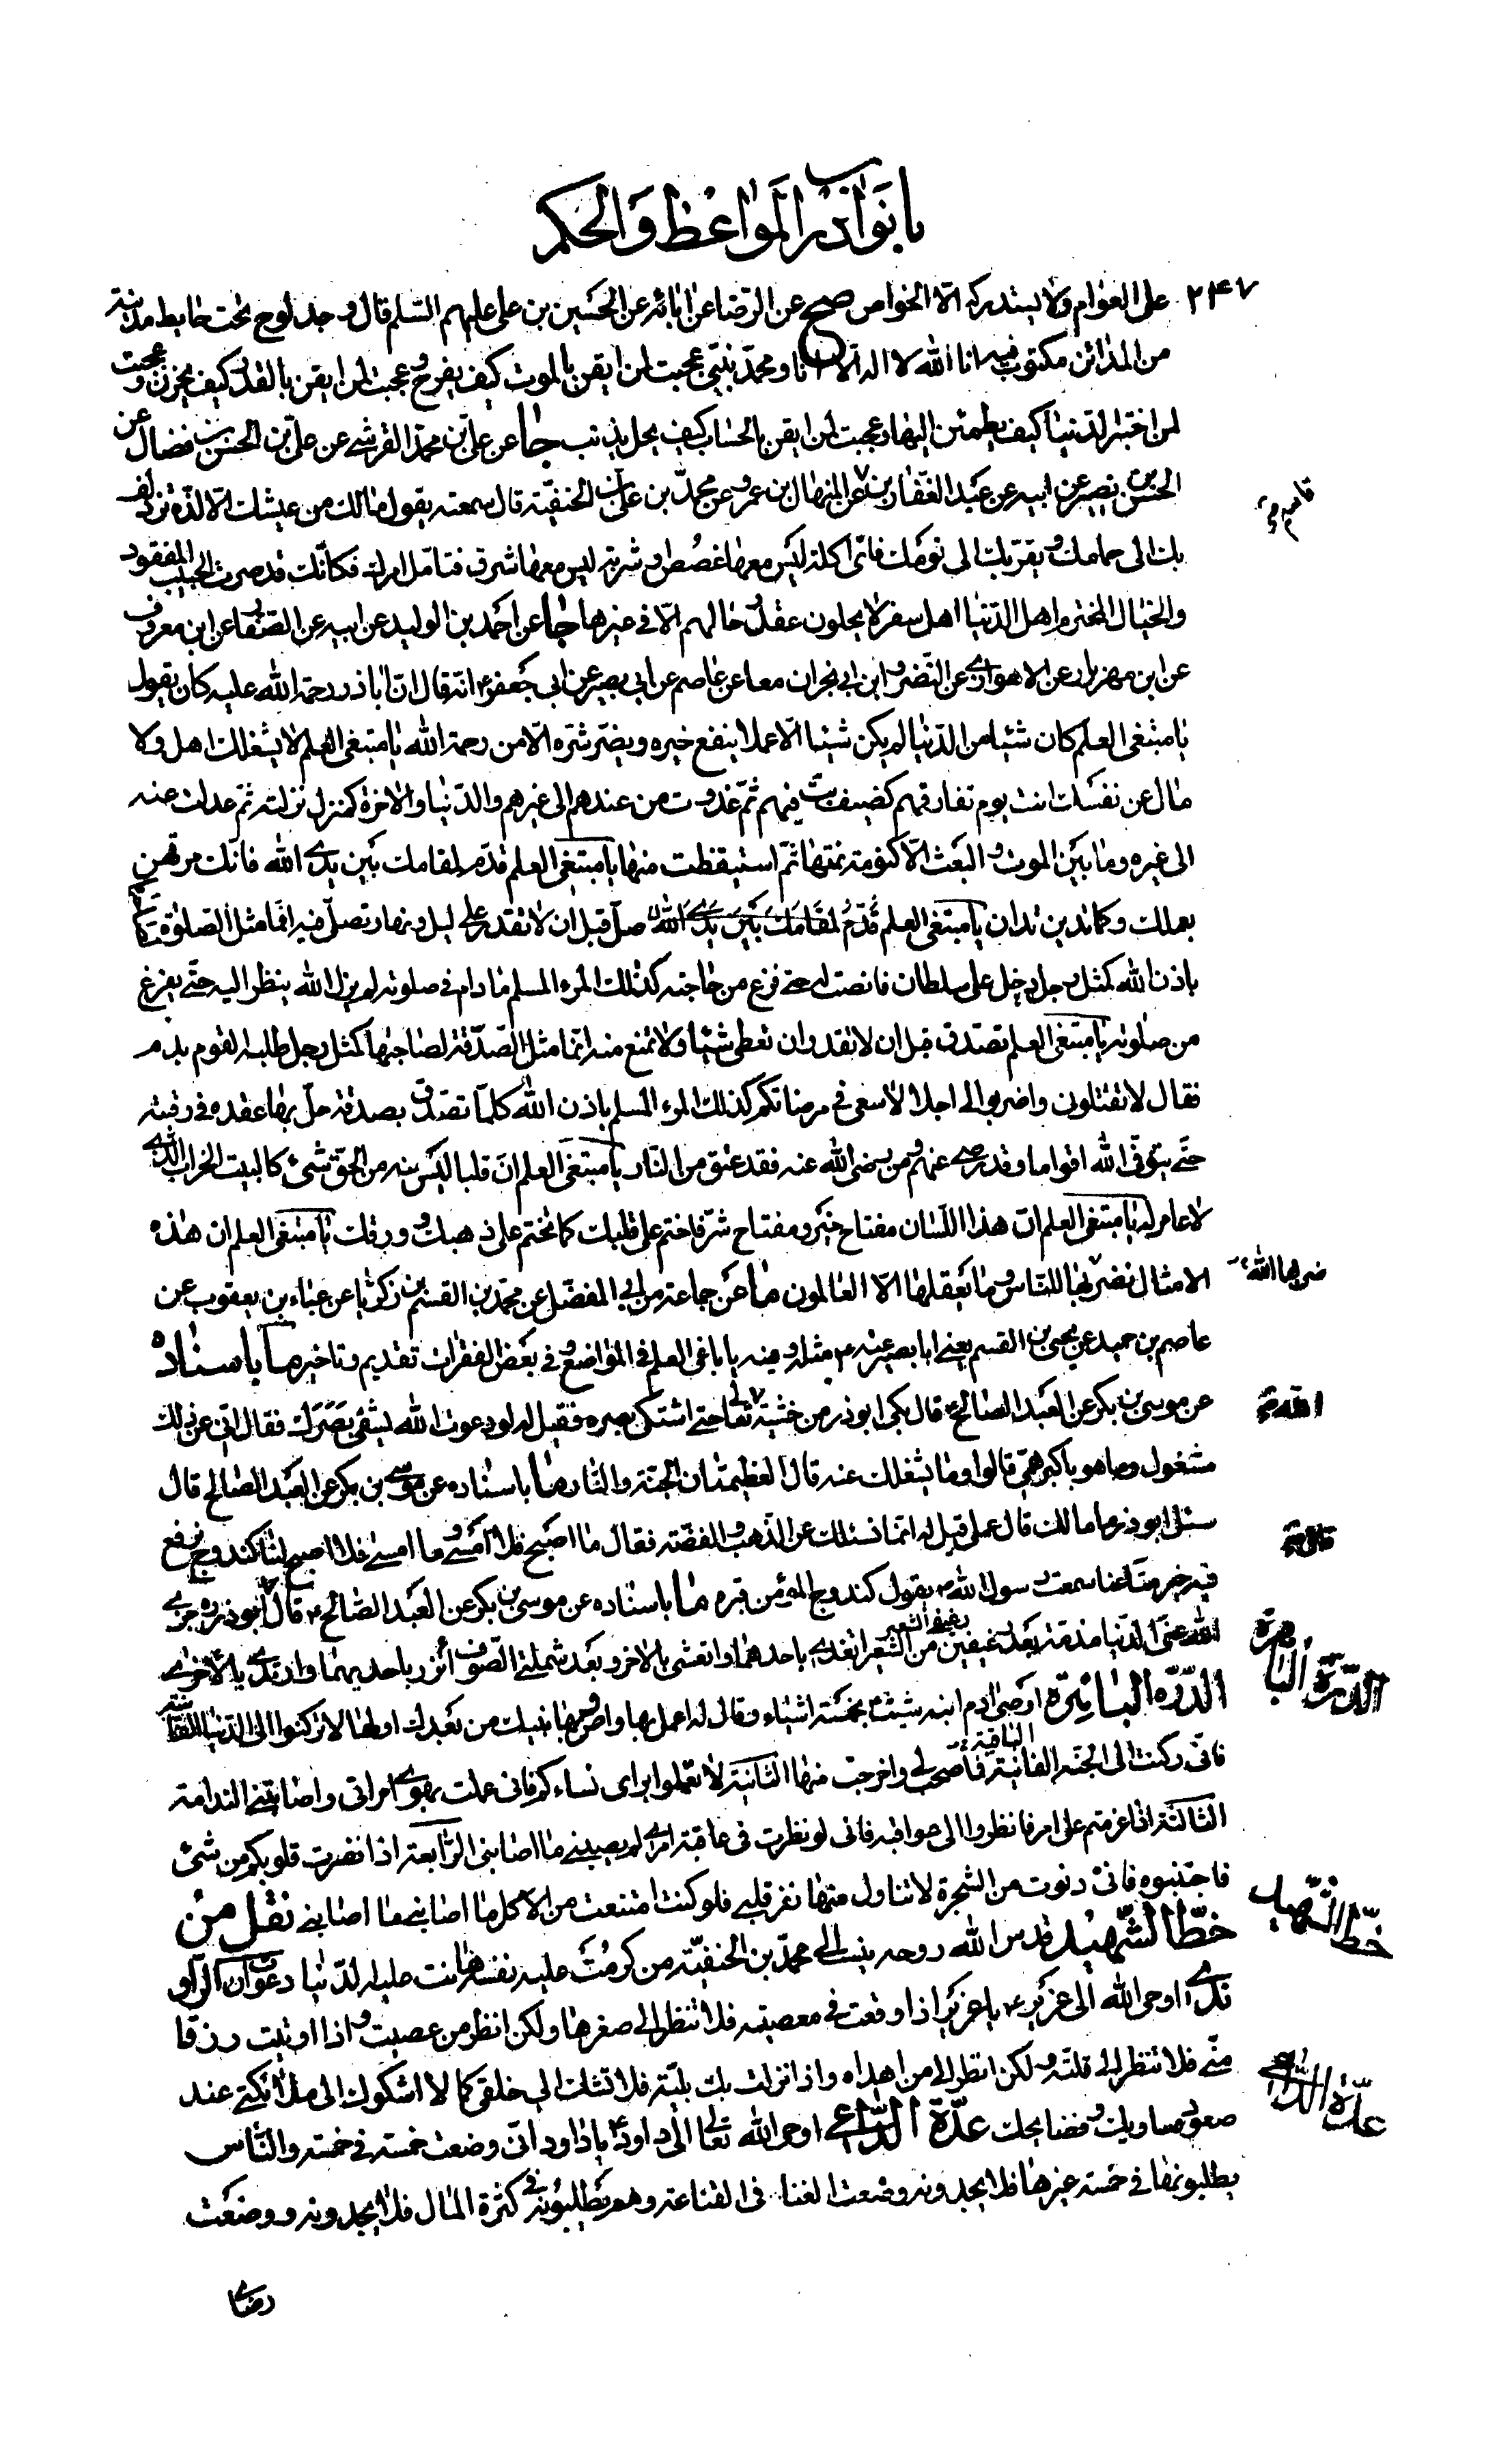 باب نوادر المواعظ والحكم
٢٤٧
على العوام ولا يستدركه الّا الخواص صح عن الرّضا عن اٰبائه عن الحسين بن على عليهم السّلم قال وجد لوح تحت حايط مدينة
من المداين مكتوب فيه انا الله لا اله الّا انا ومحمّد نبيّي عجبت لمن ايقن بالموت كيف يفرح وعجبت لمن ايقن بالقدر كيف يحزن وعجبت
لمن اختبر الدّنيا كيف يطمئن اليها وعجبت لمن ايقن بالحساب كيف يذنب جا عن علىّ بن محمّد القرشى عن علىّ بن الحسن بن فضال عن
الحسين بن نصير عن ابيه عن عبد الغفار بن عن المنهال بن عمرو عن محمّد بن على بن الحنفيّة قال سمعته يقول مالك من عيشك الّا لذّة تزدلف
بك الى حمامك ويقرّبك الى نومك فاىّ اكلة ليس معها غصص وشربة ليس معها شرق فتأمّل امرك فكأنّك قد صرت الحبيب المفقود
والخيال المخترم اهل الدّنيا اهل سفر لا يحلون عقد رحالهم الّا فى غيرها جا عن احمد بن الوليد عن ابيه عن الصّفار عن ابن معروف
عن ابن مهزيار عن الاهوازى عن النّضر وابن ابى نجران معا عن عاصم عن ابى بصير عن ابى جعفر ع انّه قال انّ اباذر رحمة الله عليه كان يقول
يا مبتغى العلم كان شيئا من الدّنيا لم يكن شيئا الّا عملا ينفع خيره ويضرّ شرّه الّا من رحمة الله يا مبتغى العلم لا يشغلك اهل ولا
مال عن نفسك انت يوم تفارقهم كضيف بتّ فيهم ثمّ غدوت من عندهم الى غيرهم والدّنيا والاٰخرة كمنزل نزلته ثمّ عدلت عنه
الى غيره وما بين الموت والبعث الّا كنومة نمتها ثمّ استيقظت منها يا مبتغى العلم قدّم لمقامك بين يدى الله فانّك مرتهن
بعملك وكما تدين تدان يا مبتغى العلم قدّم لمقامك بين يدى الله صلّ قبل ان لا تقدر على ليل ونهار تصلّى فيه انّما مثل الصّلوة
باذن الله كمثل رجل دخل على سلطان فانصت له حتى فرغ من حاجته كذلك المرء المسلم مادام فى صلوته لم يزل الله ينظر اليه حتّى يفرغ
من صلوته يا مبتغى العلم تصدق قبل ان لا تقدر ان تعطى شيئا ولا تمنع منه انّما مثل الصّدقة لصاحبها كمثل رجل طلبه القوم بدم
فقال لا تقتلون واضربوا لى اجلا لاسعى فى مرضاتكم كذلك المرء المسلم باذن الله كلّما تصدّق بصدقة حلّ بها عقدة فى رقبته
حتّى يتوفّى الله اقواما وقد رضى عنهم ومن رضى الله عنه فقد عتق من النّار يا مبتغى العلم انّ قلبا ليس فيه من الحق شىء كالبيت الخراب الّذى
لا عامر له يا مبتغى العلم انّ هذا اللّسان مفتاح خير ومفتاح شرّ فاختم على قلبك كما تختم على ذهبك وورقك يا مبتغى العلم ان هذه
الامثال نضربها للنّاس وما يعقلها الّا العالمون ما عن جماعة عن ابى المفضّل عن محمّد بن القسم بن زكريّا عن عباد بن يعقوب عن
عاصم بن حميد عن يحيى بن القسم يعنى ابا بصير عنه ع مثله وفيه يا باغى العلم فى المواضع وفى بعض الفقرات تقديم وتأخير ما باسناده
عن موسى بن بكر عن العبد الصّالح ع قال بكى ابوذر من خشية تعالى حتّى اشتكى بصره فقيل له لو دعوت الله يشفى بصرك فقال انّى عن ذلك
مشغول وما هو باكبر همّى قالوا وما يشغلك عنه قال العظيمتان الجنّة والنّار ما باسناده عن موسى بن بكر عن العبد الصّالح قال
سئل ابوذر ما مالك قال عملى قيل له انّما نسئلك عن الذّهب والفضّة فقال ما اصبح فلا امسى وما امسى فلا اصبح لنا كندوج نرفع
فيه خير متاعنا سمعت رسول الله ص يقول كندوج المؤمن قبره ما باسناده عن موسى بن بكر عن العبد الصّالح ع قال قال ابوذر ره جزى
الله عنّى الدّنيا مذمّة بعد رغيفين من الشّعير اتغدى باحدهما واتعشى بالاخر وبعد شملتى الصّوف ائتزر باحديهما وارتدى بالاخرى
الدّرّة الباهرة اوصى ادم ابنه شيث ع بخمسة اشياء وقال له اعمل بها واوص بها بنيك من بعدك اولها لا تركنوا الى الدّنيا الفانية
فانّى ركنت الى الجنّة الباقية فما صحب لى واخرجت منها الثّانية لا تعملوا براى نساءكم فانى عملت بهوى امراتى واصابتنى الندامة
الثالثة اذا عزمتم على امر فانظروا الى عواقبه فانى لو نظرت فى عاقبة امرى لم يصبنى ما اصابنى الرّابعة اذا نفرت قلوبكم من شىء
فاجتنبوه فانّى دنوت من الشجرة لاتناول منها نفر قلبى فلو كنت امتنعت من الاكل ما اصابنى ما اصابنى نقل من
خطّ الشّهيد قدس الله روحه ينسب الى محمّد بن الحنفيّة من كرمت عليه نفسه هانت عليه الدّنيا دعوات الرّاو
ندى اوحى الله الى عزير ع يا عزير اذا وقعت فى معصية فلا تنظر الى صغرها ولكن انظر من عصيت واذا اوتيت رزقا
منّى فلا تنظر الى قلّته ولكن انظر الى من اهداه واذا نزلت بك بليّة فلا تشك الى خلقى كما لا اشكوك الى ملائكتى عند
صعود مساويك وفضايحك عدّة الدّاعى اوحى الله تعالى الى داود ع يا داود انّى وضعت خمسة فى خمسة والنّاس
يطلبونها فى خمسة غيرها فلا يجدونه وضعت الغنا فى القناعة وهم يطلبونه فى كثرة المال فلا يجدونه ووضعت
ضربها الله
الله
قال
الدّرّة الباهرة
خطّ الشّهيد
عدّة الدّاعى
رضاى